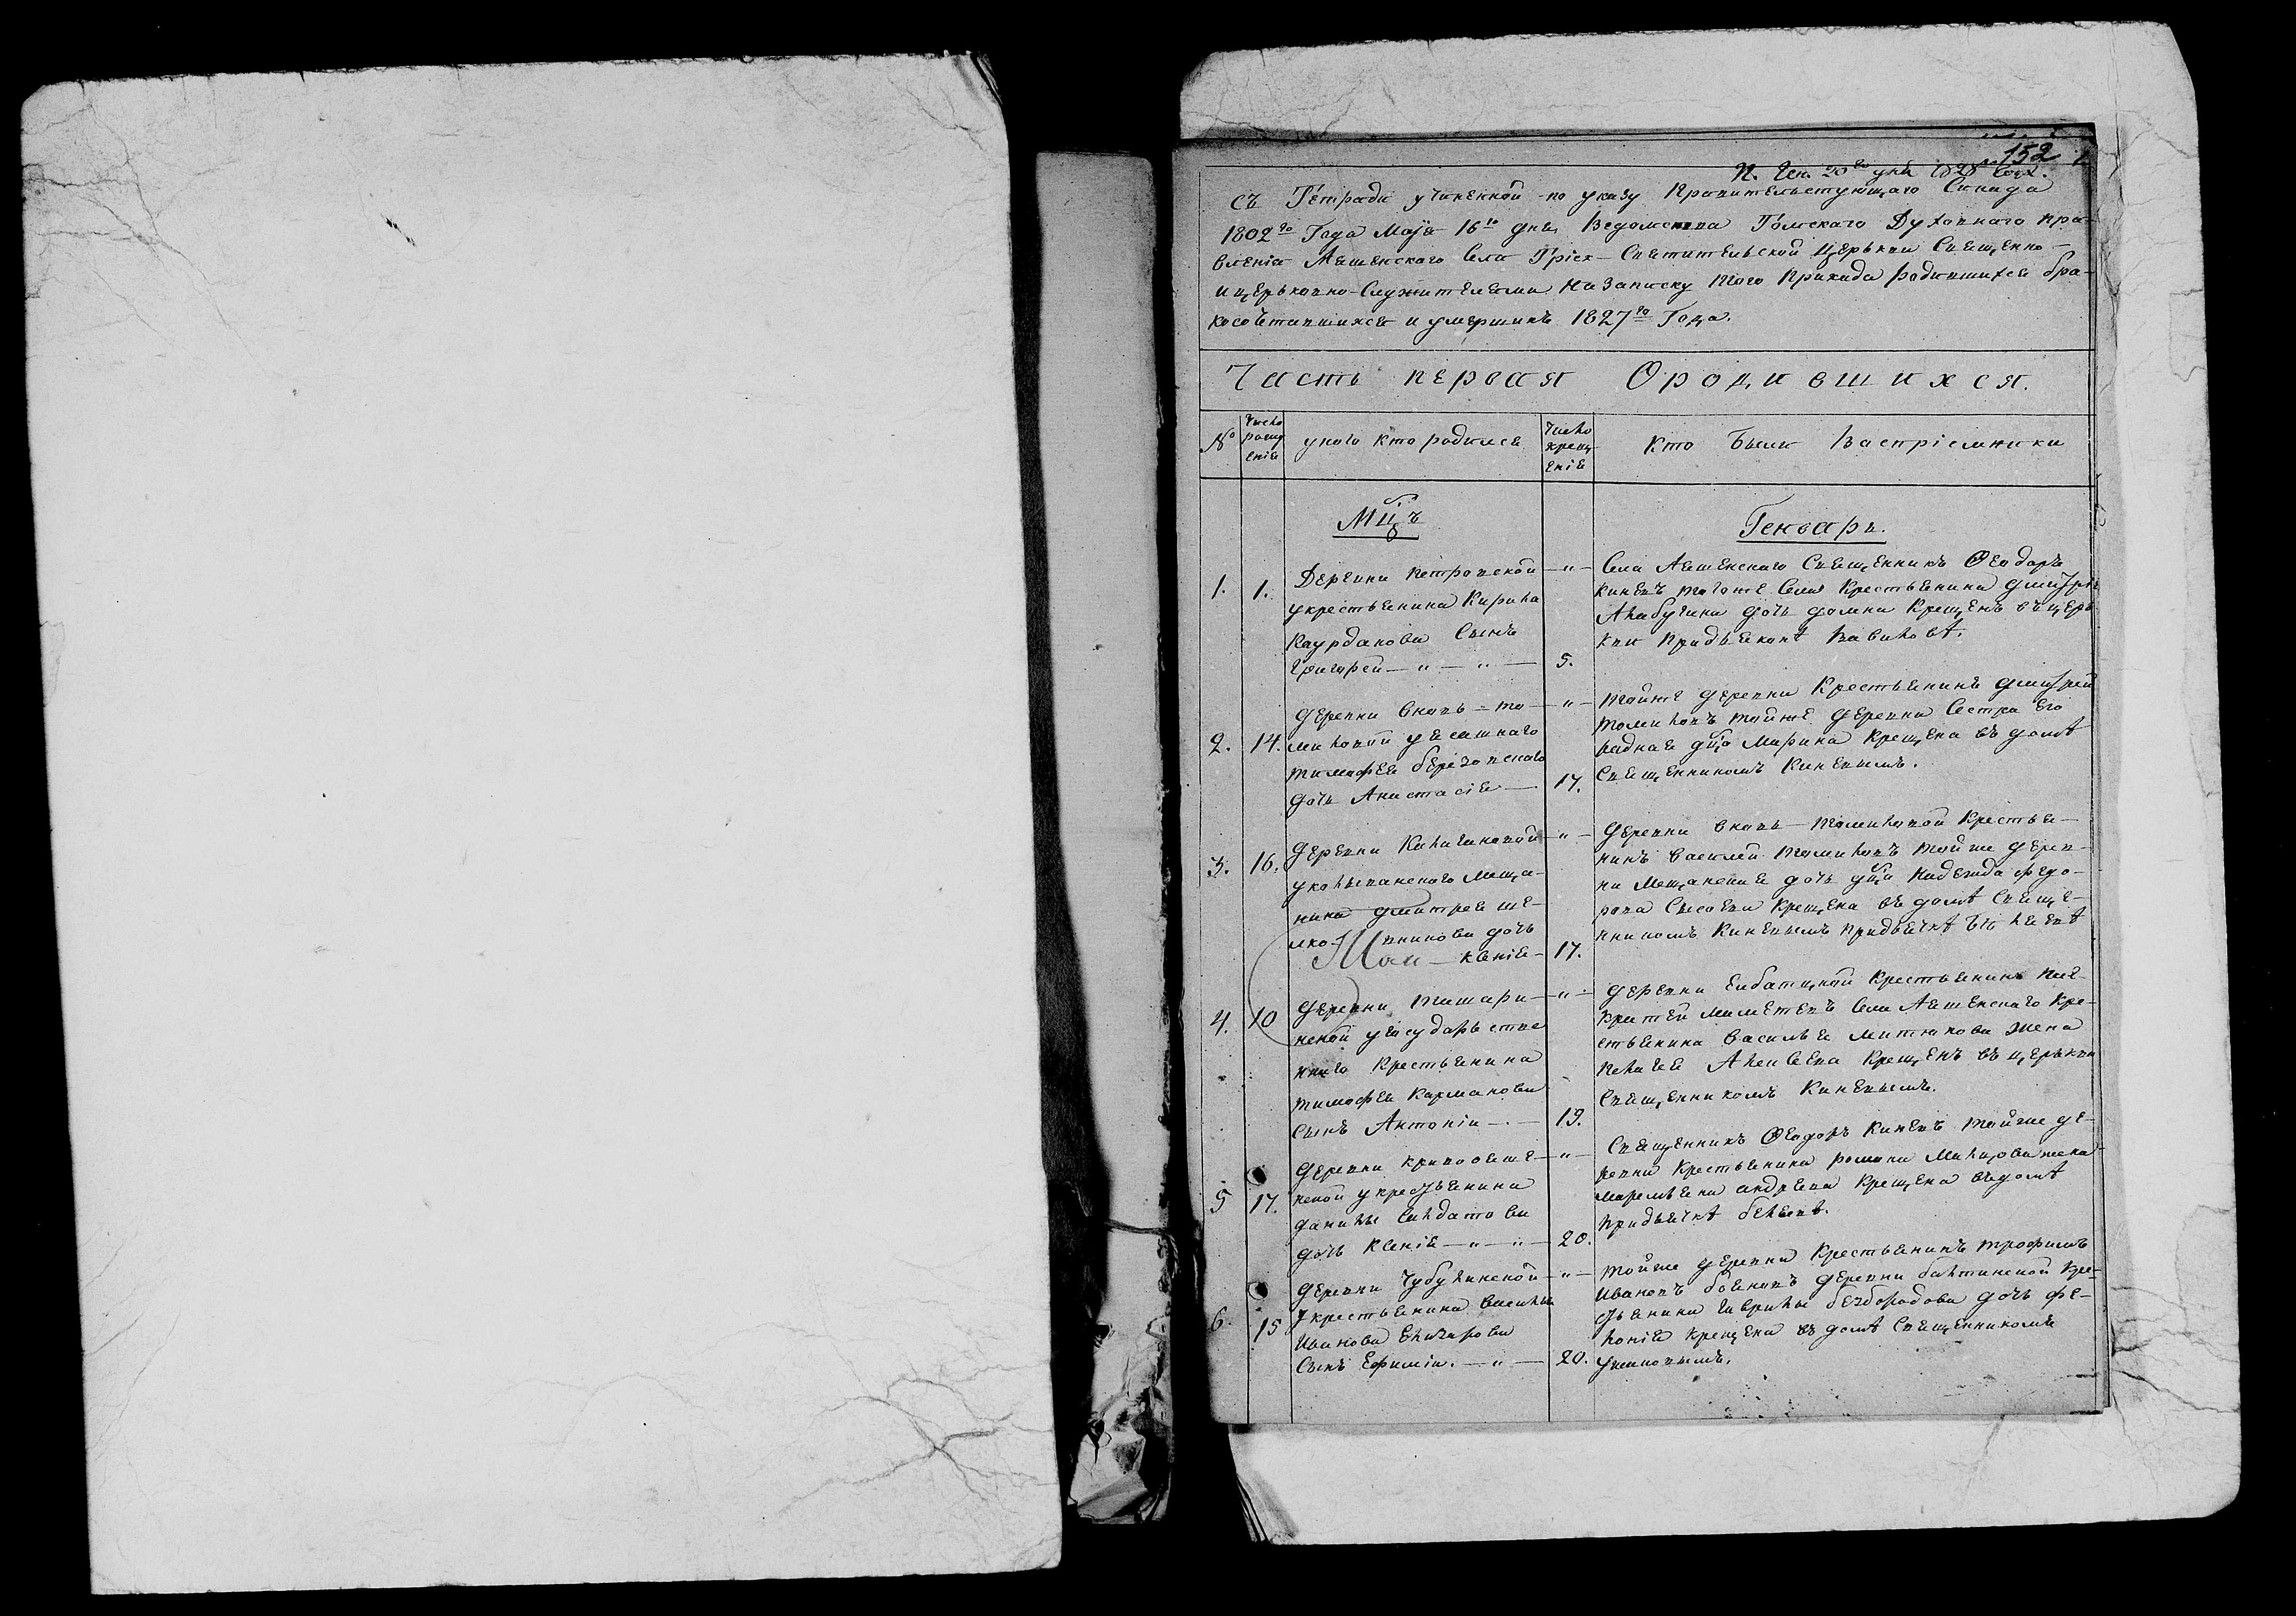 152
П. Ген. 20го дня 1828 года.
Съ Тетради учиненной по указу Правительствующаго Синода
1802го Года Маїя 16го дня, Ведомства Томскаго Духовнаго пра-
вленія Аяшенскаго Села Трiех-Святительской Церькви Священно-
и церьковно-Служителями На Записку того Прихода Родившихся бра-
косочетавшихся и умершихъ 1827го Года.
Часть первая О родившихся.
№
Число рожденія
у кого кто родился
Число крещенія
Кто были Воспріемники
Мцъ
Генварь.
1. 1.
Деревни Петровской — „ —
у крестьянина Кирила
Каурдакова Сынъ
Григорей — „ — „ — 5.
Села Аяшенскаго Священникъ Ѳеодоръ
Киневъ того же Села Крестьянина Дмитрія
дочь Домна Крещенъ въ церь-
кви Придьяконѣ Вавиловѣ.
2. 14.
Деревни вновь-То- — „ —
миловой у ясашнаго
Тимофея Березовскаго
дочь Анастасія — 17.
Тойже деревни Крестьянинъ Дмитрей
Томиловъ тойже деревни Сестра Его
родная дца Марина Крещена въ домѣ
Священникомъ Киневымъ.
3. 16.
Деревни — „ —
у колыванскаго Меща-
нина Дмитрея Ше-
дочь
Ксенія — 17.
Деревни вновь-Томиловой Крестья-
нинъ Василей Томиловъ Тойже дерев-
ни Мещанская дочь дца Надежда Федо-
рова Сысоева Крещена въ домѣ Свяще-
нникомъ Киневымъ придьячкѣ
4. 10
Деревни — „ —
ской у Государьстве
ннаго Крестьянина
Тимофея Карманова
Сынъ Антоній — . — 19.
Деревни Крестьянинъ
Села Аяшенскаго Кре-
стьянина Василья Митюкова жена
Пелагея Крещенъ въ церькви
Священникомъ Киневымъ.
5 17.
Деревни Кривояше — „ —
ской у крестьянина
Данилы Салдатова
дочь Ксенія — „ — „ — 20.
Священникъ Ѳеодоръ Киневъ Тойже де-
ревни Крестьянина Романа жена
Андрева Крещена въ домѣ
придьячкѣ
6. 15
Деревни — „ —
У крестьянина Василья
Иванова
Сынъ Ефимій. — „ — 20.
Тойже деревни Крестьянинъ Трофимъ
Ивановъ деревни Балтинской Кре-
стьянина Гаврилы Безбородова дочь Фе-
лонія Крещена въ домѣ Священникомъ